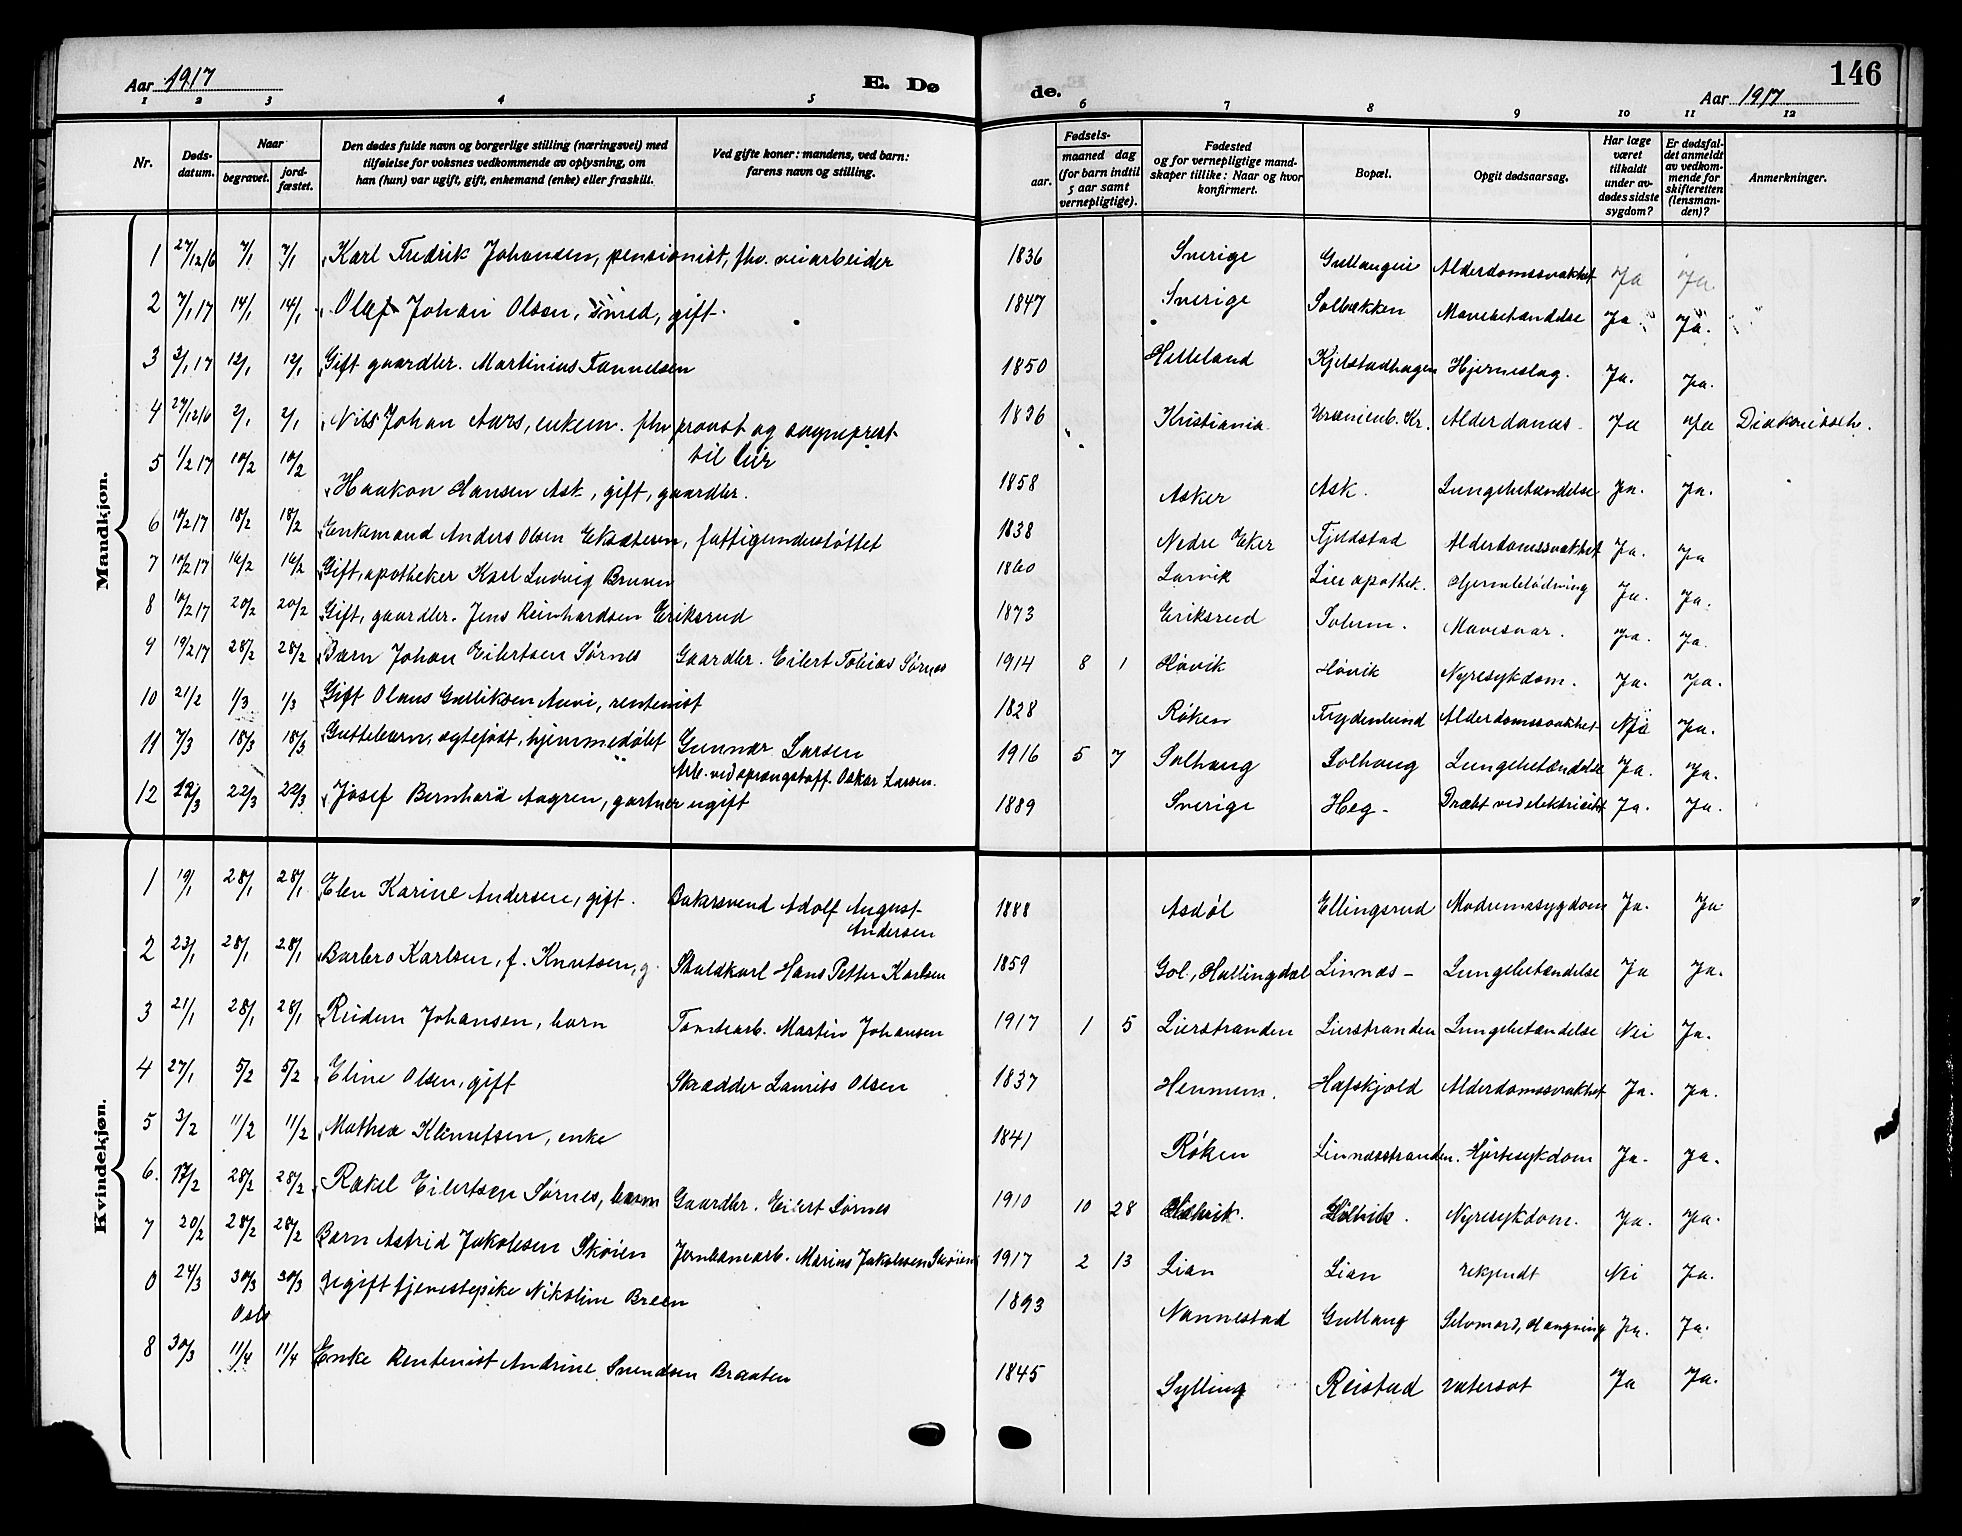 Aar 1917
E. Dø
de.
Aar 1917
146
1 2 3 4 5
6 7 8 9 10 11 12
Nr.
Døds-
datum.
Naar
begravet.
jord-
fæstet.
Den dødes fulde navn og borgerlige stilling (næringsvei) med
tilføielse for voksnes vedkommende av oplysning, om
han (hun) var ugift, gift, enkemand (enke) eller fraskilt.
Ved gifte koner: mandens, ved barn:
farens navn og stilling.
Fødsels-
aar.
maaned dag
(for barn indtil
5 aar samt
vernepligtige).
Fødested
og for vernepligtige mand-
skaper tillike: Naar og hvor
konfirmert.
Bopæl.
Opgit dødsaarsag.
Har læge
været
tilkaldt
under av-
dødes sidste
sygdom?
Er dødsfal-
det anmeldt
av vedkom-
mende for
skifteretten
(lensman-
den)?
Anmerkninger.
Mandkjøn.
1 27/12 16 7/1 7/1 Karl Fredrik Johansen, pensionist, fhv. veiarbeider 1836 Sverige Gullaugeie Alderdomssvakhet Ja Ja
2 7/1 17 14/1 14/1 Olaf Johan Olsen, Smed, gift. 1847 Sverige Solbækken Mavebetændelse Ja. Ja.
3 3/1 17 12/1 12/1 Gift gaardbr. Martinius Fannelsen 1850 Helleland Kjelstadhagen Hjerneslag. Ja. Ja.
4 27/12 16 2/1 2/1 Nils Johan Aars, enkem. fhv provst og sogneprest 1836 Kristiania Uranienb. Kr. Alderdoms- Ja Ja Diakonissehr.
til Lier
5 1/2 17 10/2 10/2 Haakon Hansen Ask, gift, gaardbr. 1858 Asker Ask. Lungebetændelse Ja. Ja.
6 10/2 17 18/2 18/2 Enkemand Anders Olsen Eksæteren, fattigunderstøttet 1838 Nedre Eker Fjeldstad Alderdomssvakhet Ja. Ja
7 10/2 17 16/2 16/2 Gift, apotheker Karl Ludvig Bruun 1860 Larvik Lier apothek. Hjerneblødning Ja. Ja.
8 10/2 17 20/2 20/2 Gift, gaardbr. Jens Reinhardsen Eriksrud 1873 Eriksrud Solum. Mavesaar. Ja. Ja.
9 19/2 17 28/2 28/2 Barn Johan Eilertsen Sørnes Gaardbr. Eilert Tobias Sørnes 1914 8 1 Høvik Høvik Nyresykdom. Ja. Ja.
10 21/2 1/3 1/3 Gift Olaus Gulliksen Auvi, rentenist 1828 Røken Frydenlund Alderdomssvakhet Nei Ja.
11 7/3 18/3 18/3 Guttebarn, ægtefødt, hjemmedøbt Gunnar Larsen 1916 5 7 Solhaug Solhaug Lungebetændelse Ja. Ja.
Arb. ved sprængstoff. Oskar Larsen.
12 12/3 22/3 22/3 Josef Bernhard Aagren, gartner ugift 1889 Sverige Heg- Dræbt ved elektricitet Ja. Ja.
Kvindekjøn.
1 19/1 28/1 28/1 Elen Karine Andersen, gift. Bakersvend Adolf August 1888 Asdøl Ellingsrud Modermsygdom Ja. Ja
Andersen
2 23/1 28/1 28/1 Barbro Karlsen, f. Knutsen, g. Staldkarl Hans Petter Karlsen 1859 Gol, Hallingdal Linnæs- Lungebetændelse Ja Ja.
3 21/1 28/1 28/1 Reidun Johansen, barn Tomtearb. Martin Johansen 1917 1 5 Lierstranden Lierstranden Lungebetændelse Nei Ja.
4 27/1 5/2 5/2 Eline Olsen, gift Skrædder Laurits Olsen 1837 Hennum. Hafskjold Alderdomssvakhet Ja. Ja.
5 3/2 11/2 11/2 Mathea Klemetsen, enke 1841 Røken Linnæsstranden. Hjertesykdom Ja. Ja.
6. 17/2 28/2 28/2 Rakel Eilertsen Sørnes, barn Gaardbr. Eilert Sørnes 1910 10 28 Nyresykdom. Ja. Ja.
7 20/2 28/2 28/2 Barn Astrid Jakobsen Skøien Jernbanearb. Marius Jakobsen Skøien 1917 2 13 Lian Lian ukjendt Nei Ja.
0 24/3 30/3 30/3 Ugift tjenestepike Nikoline Breen 1893 Nannestad Gullaug Selvmord, Hængning Ja. Ja.
Oslo
8 30/3 11/4 11/4 Enke Rentenist Andrine Svendsen Braaten 1845 Sylling Reistad vatersot Ja Ja.